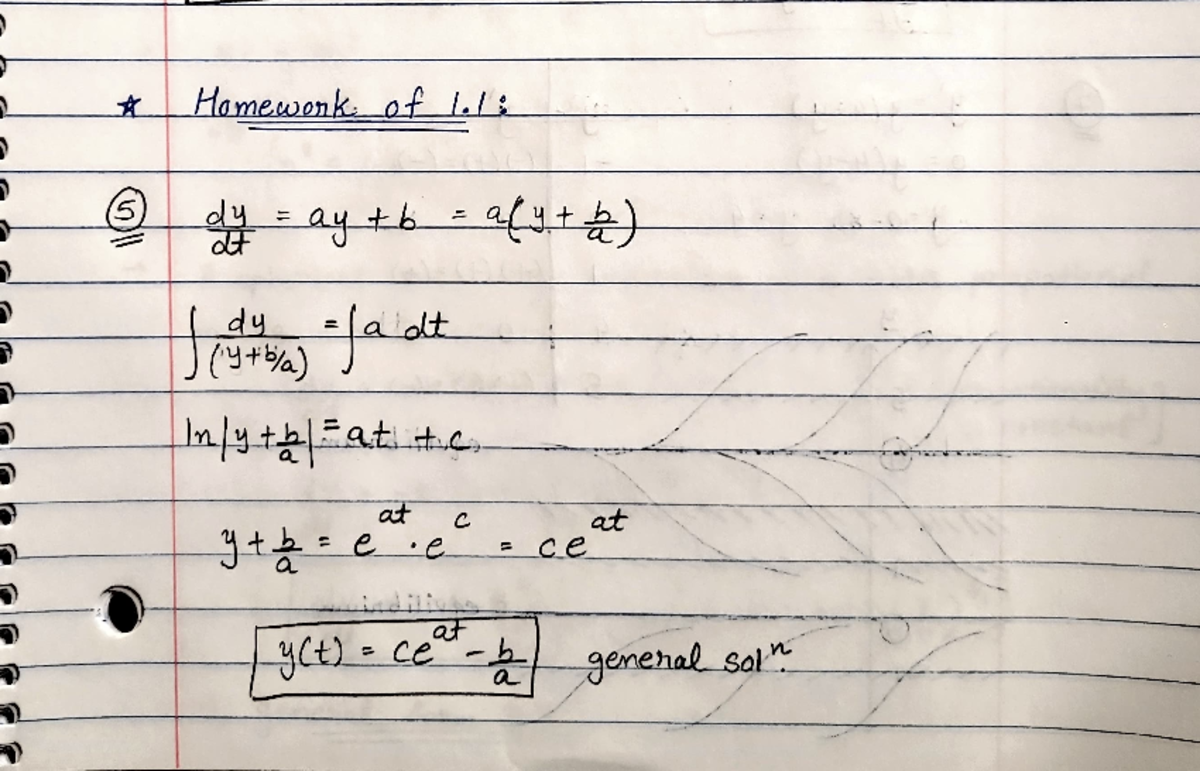 ★ Homework of 1.1:
⑤ dy/dt = ay + b = a(y + b/a)
∫ dy/(y+b/a) = ∫ a dt
ln|y + b/a| = at + c
y + b/a = e^at · e^c = ce^at
y(t) = ce^at - b/a general solⁿ.